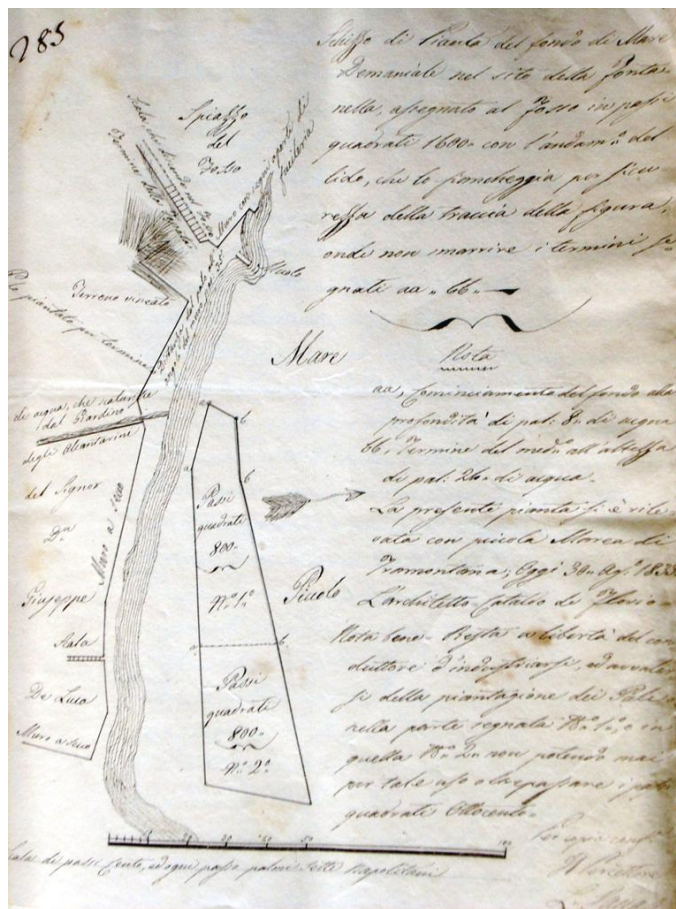 285
Schizzo di Pianta del fondo di Mare
Demaniale nel sito della fonta=
nella, assegnato al Fosso in passi
quadrati 1600= con l'andam.º del
lido, che lo
della traccia della figura,
onde non smarrire i termini se=
gnati aa = bb=
Nota
aa, Cominciamento del fondo alla
profondità di pal: 8= di acqua
bb, Termine del med.º all'altezza
di pal: 26= di acqua=
La presente pianta si è rile=
vata con piccola Marea di
Tramontana, Oggi 30= Ag.º 1833
L'architetto Cataldo de Florio=
Nota bene= Resta a libertà del con=
duttore d'industriarsi, ed avvaler=
si della piantagione dei Pali
nella parte segnata N.º 1.º, o in
quella N.º 2= non potendo mai
per tale uso oltrepassare i passi
quadrati Ottocento=
Per copia conf.
Spiazzo
del
Fosso
Muro con segni aperti di
fucileria
Terreno vincato
piantato per termine
di acqua, che
dal Giardino
degli Alcantarini
del Signor
D.n
Giuseppe
Scala
De Luca
Muro a secco
Muro a secco
Mare
Piccolo
a
b
a
b
Passi
quadrati
800=
N.º 1.º
a
b
Passi
quadrati
800=
N.º 2.º
50
100
Scala di passi Cento, ed ogni passo palmi sette Napolitani